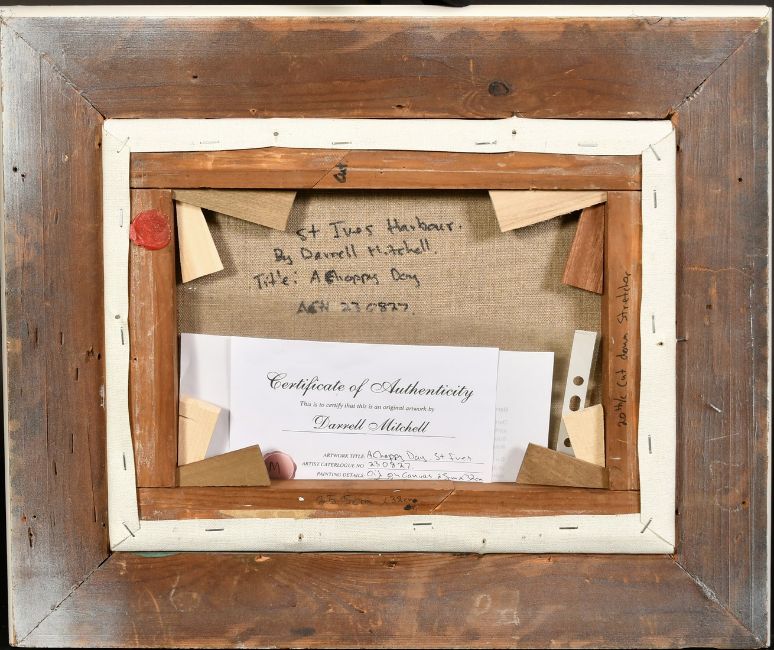 Cut
St Ives Harbour.
By Darrell Mitchell.
Title: A Choppy Day
ACN 230827.
20thc Cut down Stretcher
Certificate of Authenticity
This is to certify that this is an original artwork by
Darrell Mitchell
ARTWORK TITLE: A Choppy Day St Ives
ARTIST CATERLOGUE NO: 230827.
PAINTING DETAILS: Oil on Canvas 25cm x 32cm
M
25.5cm